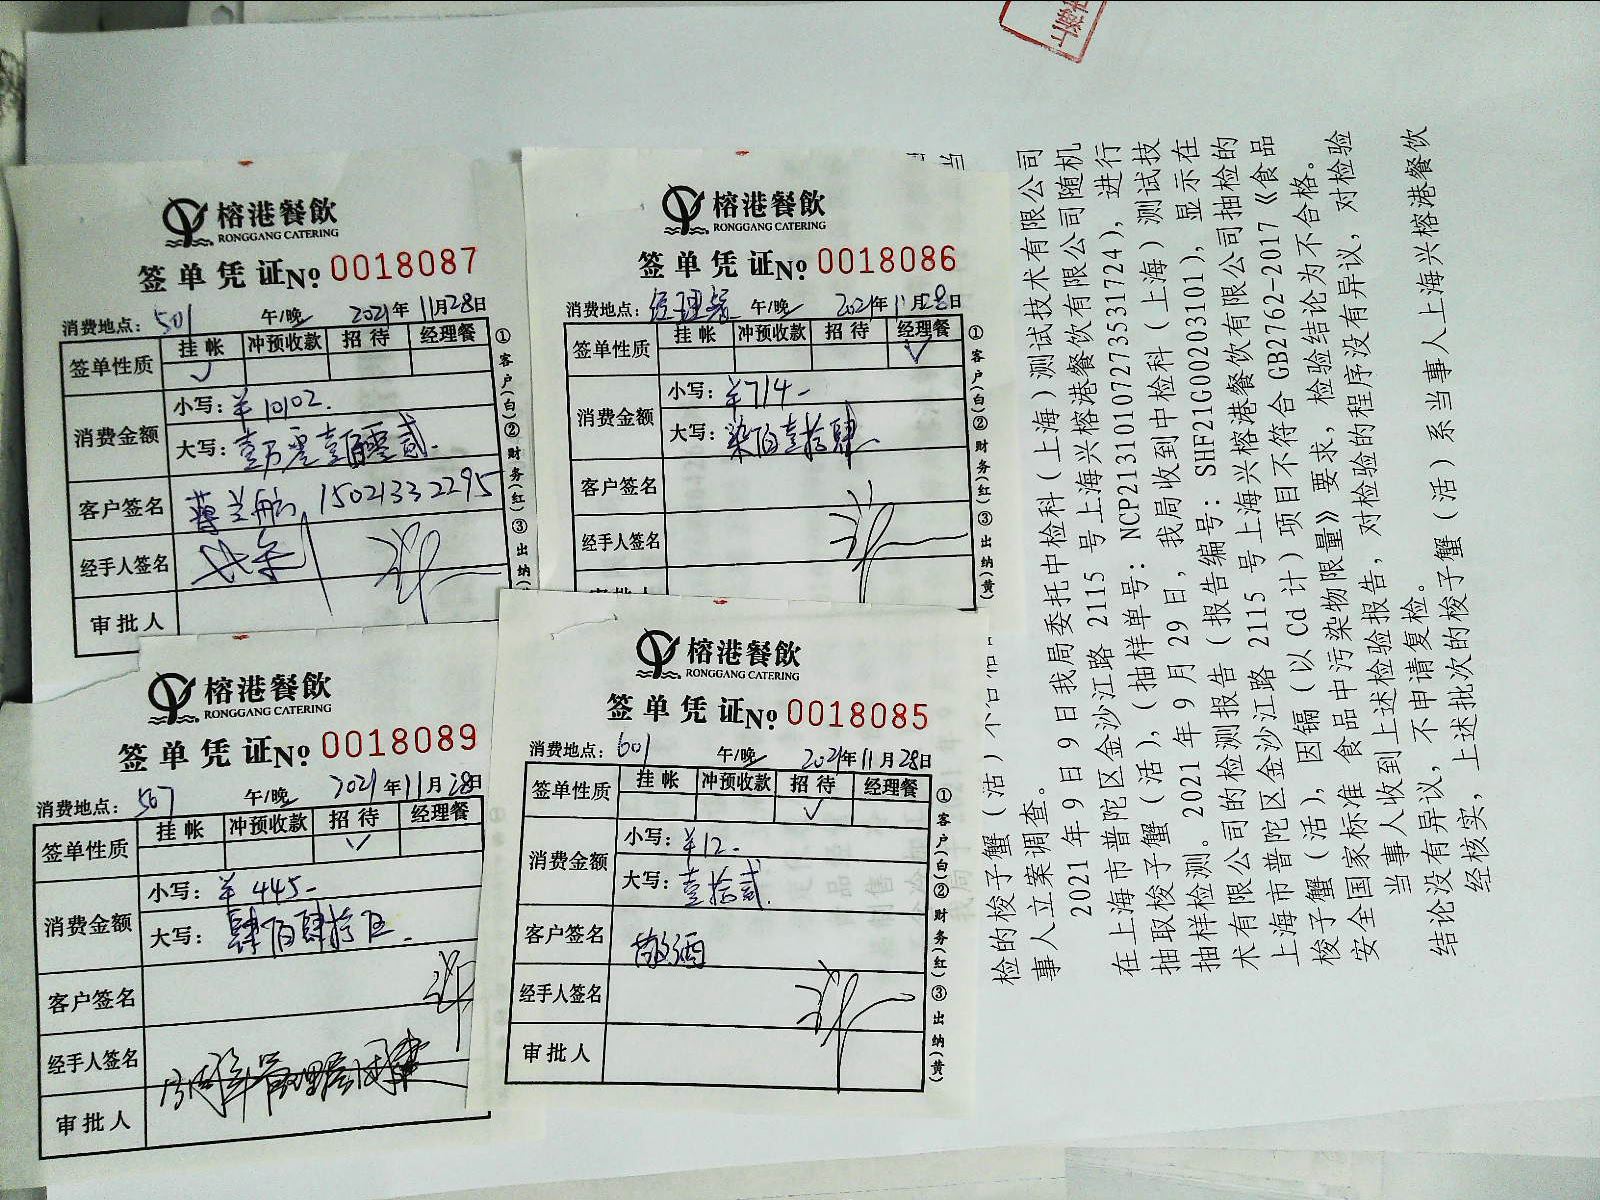 榕港餐飲
RONGGANG CATERING
签单凭证 No. 0018087
消费地点: 501 午/晚 2021年11月28日
签单性质 挂帐 冲预收款 招待 经理餐
✓
消费金额 小写: ¥10102.
大写: 壹万零壹佰零贰.
客户签名 15021332295
经手人签名
审批人
①客户(白)②财务(红)③出纳(
榕港餐飲
RONGGANG CATERING
签单凭证 No. 0018086
消费地点: 经理餐 午/晚 2021年11月28日
签单性质 挂帐 冲预收款 招待 经理餐
✓
消费金额 小写: ¥714-
大写: 柒佰壹拾肆
客户签名
经手人签名
①客户(白)②财务(红)③出纳(黄)
榕港餐飲
RONGGANG CATERING
签单凭证 No. 0018089
消费地点: 507 午/晚 2021年11月28日
签单性质 挂帐 冲预收款 招待 经理餐
✓
消费金额 小写: ¥445-
大写: 肆佰肆拾伍.
客户签名
经手人签名
审批人
榕港餐飲
RONGGANG CATERING
签单凭证 No. 0018085
消费地点: 601 午/晚 2021年11月28日
签单性质 挂帐 冲预收款 招待 经理餐
✓
消费金额 小写: ¥12-
大写: 壹拾贰
客户签名 敬酒
经手人签名
审批人
①客户(白)②财务(红)③出纳(黄)
检的梭子蟹（活）不合格
事人立案调查。
2021年9日9日我局委托中检科（上海）测试技术有限公司
在上海市普陀区金沙江路2115号上海兴榕港餐饮有限公司随机
抽取梭子蟹（活），（抽样单号：NCP21310107273531724），进行
抽样检测。2021年9月29日，我局收到中检科（上海）测试技
术有限公司的检测报告（报告编号：SHF21G00203101），显示在
上海市普陀区金沙江路2115号上海兴榕港餐饮有限公司抽检的
梭子蟹（活），因镉（以Cd计）项目不符合GB2762-2017《食品
安全国家标准 食品中污染物限量》要求，检验结论为不合格。
当事人收到上述检验报告，对检验的程序没有异议，对检验
结论没有异议，不申请复检。
经核实，上述批次的梭子蟹（活）系当事人上海兴榕港餐饮